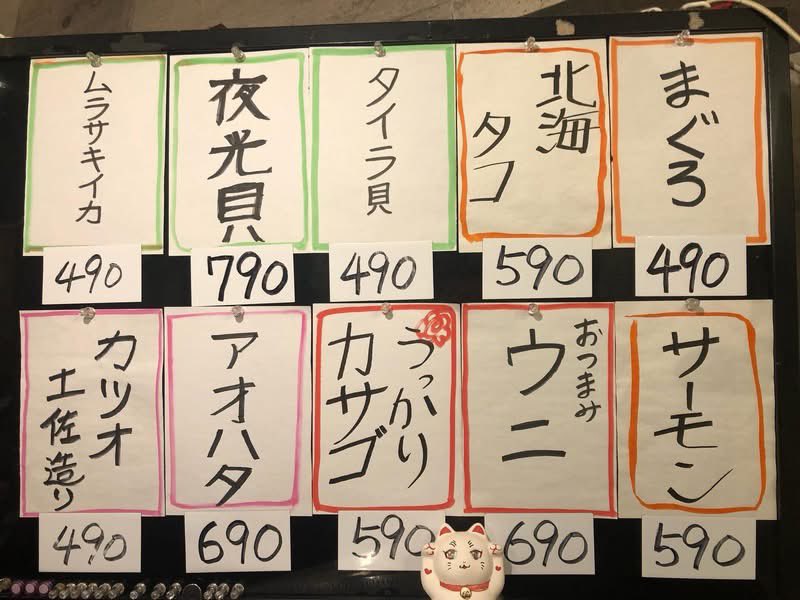 まぐろ
490
北海
タコ
590
タイラ貝
490
夜光貝
790
ムラサキイカ
490
サーモン
590
おつまみ
ウニ
690
うっかり
カサゴ
590
アオハタ
690
カツオ
土佐造り
490